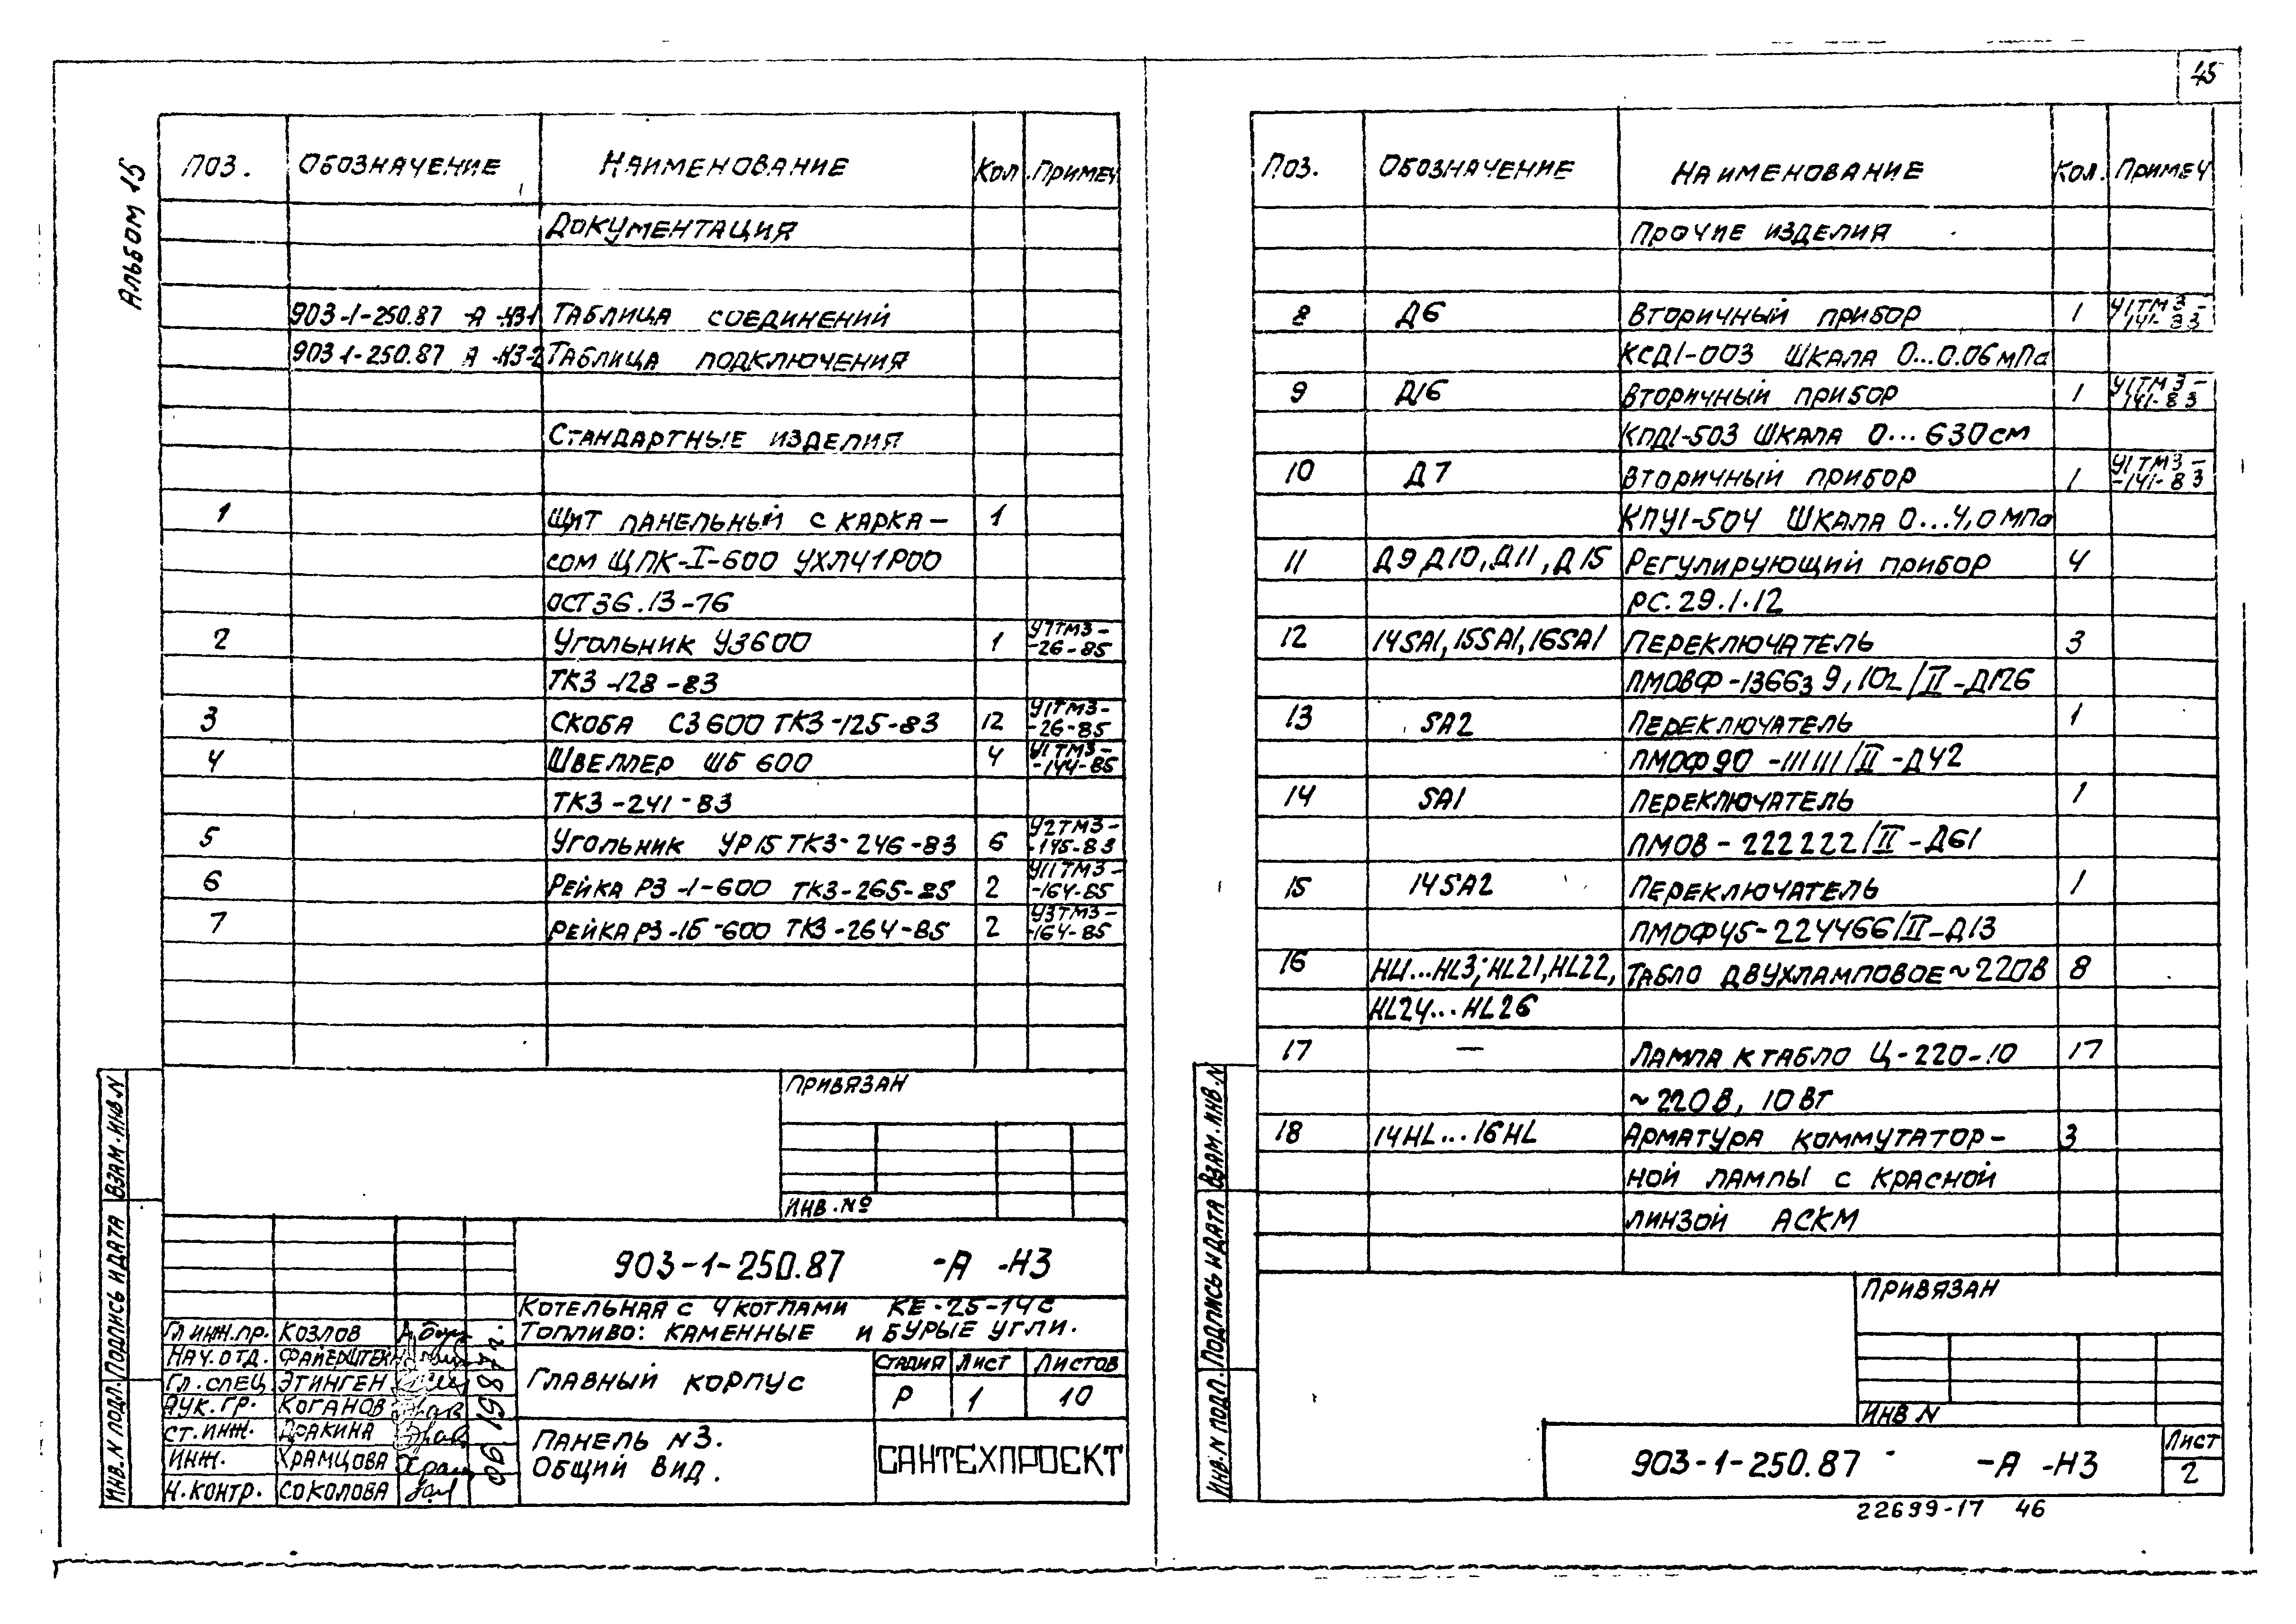 45
Альбом 15
Поз. Обозначение Наименование Кол Примеч
Документация
903-1-250.87 -А -Н3-1 Таблица соединений
903-1-250.87 А -Н3-2 Таблица подключения
Стандартные изделия
1 Щит панельный с карка- 1
сом ЩПК-I-600 УХЛ41Р00
ОСТ36.13-76
2 Угольник У3600 1 У7ТМ3-
-26-85
ТК3-128-83
3 Скоба С3600 ТК3-125-83 12 У1ТМ3-
-26-85
4 Швеллер ШБ 600 4 У1ТМ3-
-144-85
ТК3-241-83
5 Угольник УР15 ТК3-246-83 6 У2ТМ3-
-145-83
6 Рейка Р3-1-600 ТК3-265-85 2 У11ТМ3-
-164-85
7 Рейка Р3-1Б-600 ТК3-264-85 2 У3ТМ3-
-164-85
Привязан
Инв.№
903-1-250.87 -А -Н3
Котельная с 4 котлами КЕ-25-14С
Топливо: каменные и бурые угли.
Гл инж.пр. Козлов
Нач.отд.
Гл.спец Этинген
Рук.гр. Коганов
Ст.инж. Дракина
Инж. Храмцова
Н.контр. Соколова
06 1987г.
Главный корпус
Стадия Лист Листов
Р 1 10
Панель N3.
Общий вид.
САНТЕХПРОЕКТ
Инв.N подл. Подпись и дата Взам.инв.N
Поз. Обозначение Наименование Кол. Примеч
Прочие изделия
8 Д6 Вторичный прибор 1 У1ТМ3-
141-83
КСД1-003 шкала 0...0.06мПа
9 Д16 Вторичный прибор 1 У1ТМ3-
141-83
КПД1-503 шкала 0...630см
10 Д7 Вторичный прибор 1 У1ТМ3-
-141-83
КПУ1-504 шкала 0...4,0мПа
11 Д9 Д10, Д11, Д15 Регулирующий прибор 4
РС.29.1.12
12 14SA1, 15SA1, 16SA1 Переключатель 3
ПМОВФ-136639,102/II-Д126
13 SA2 Переключатель 1
ПМОФ90-111111/II-Д42
14 SA1 Переключатель 1
ПМОВ-222222/II-Д61
15 14SA2 Переключатель 1
ПМОФ45-224466/II-Д13
16 HL1...HL3; HL21, HL22, Табло двухламповое ~220В 8
HL24...HL26
17 — Лампа к табло Ц-220-10 17
~220В, 10Вт
18 14HL...16HL Арматура коммутатор- 3
ной лампы с красной
линзой АСКМ
Привязан
Инв N
903-1-250.87 -А -Н3
Лист
2
Инв.N подл. Подпись и дата Взам.инв.N
22699-17 46